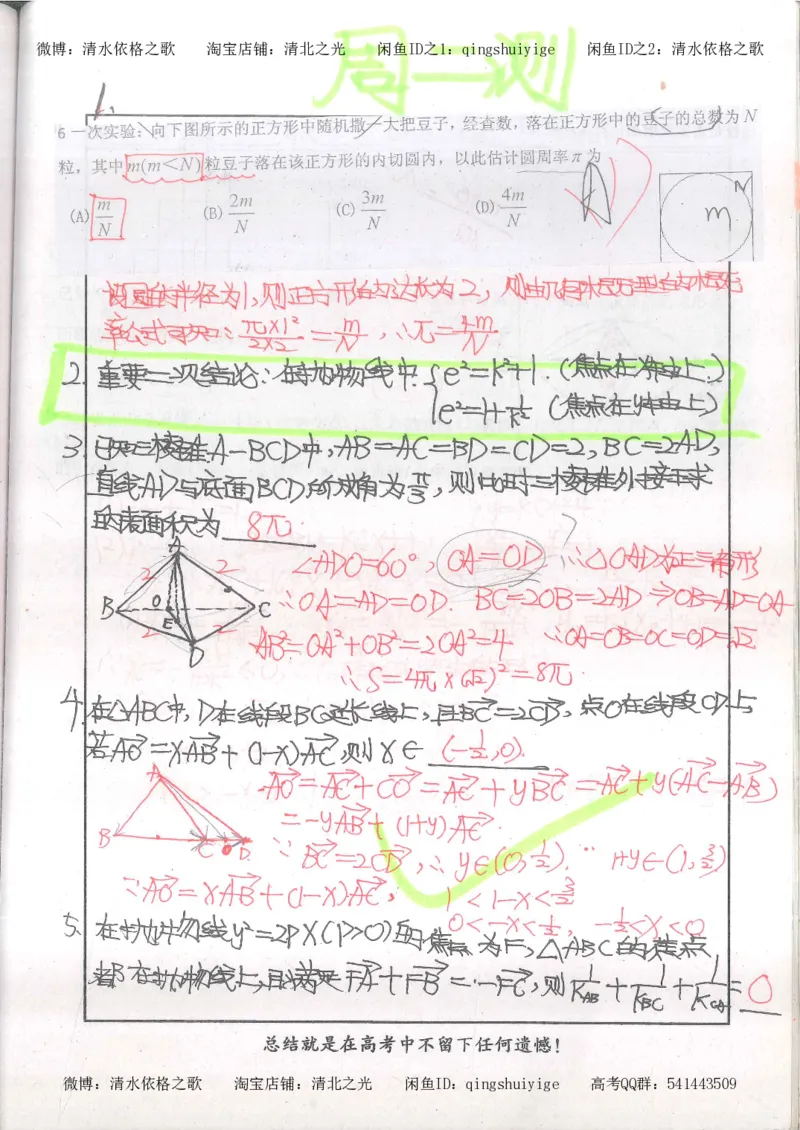 微博：清水依格之歌 淘宝店铺：清北之光 闲鱼ID之1：qingshuiyige 闲鱼ID之2：清水依格之歌
周一测
1.
6 一次实验：向下图所示的正方形中随机撒一大把豆子，经查数，落在正方形中的豆子的总数为 N
粒，其中 m(m＜N) 粒豆子落在该正方形的内切圆内，以此估计圆周率 π 为
(A) m/N (B) 2m/N (C) 3m/N (D) 4m/N
N
m
设圆的半径为1，则正方形的边长为2，则由几何概型的概率
率公式可知：π×1²/2×2 = m/N，∴π=4m/N
2. 重要二次结论：在抛物线中 { e²=k²+1 (焦点在x轴上)
e²=1+1/k² (焦点在y轴上)
3. 已知三棱锥A-BCD中，AB=AC=BD=CD=2，BC=2AD，
直线AD与底面BCD所成角为π/3，则此时三棱锥外接球
的表面积为 8π
A B C D O E 2 2 2 2
∠ADO=60°，OA=OD ∴△OAD为正三角形
∴OA=AD=OD. BC=2OB=2AD ⇒OB=AD=OA
AB²=OA²+OB²=2OA²=4 ∴OA=OB=OC=OD=√2
∴S=4π×(√2)²=8π
4. 在△ABC中，D在线段BC延长线上，且BC=2CD，点O在线段CD上
若AO=xAB+(1-x)AC，则x∈ (-1/2,0).
A B C O D
AO=AC+CO=AC+yBC=AC+y(AC-AB)
=-yAB+(1+y)AC
∵BC=2CD，∴y∈(0,1/2). ∴ 1+y∈(1,3/2)
∵AO=xAB+(1-x)AC， 1<1-x<3/2
0<-x<1/2， -1/2<x<0
5. 在抛物线y²=2px(p>0)的焦点为F，△ABC的顶点
都在抛物线上，且满足FA+FB=-FC，则1/K_AB+1/K_BC+1/K_CA=0
总结就是在高考中不留下任何遗憾！
微博：清水依格之歌 淘宝店铺：清北之光 闲鱼ID：qingshuiyige 高考QQ群：541443509